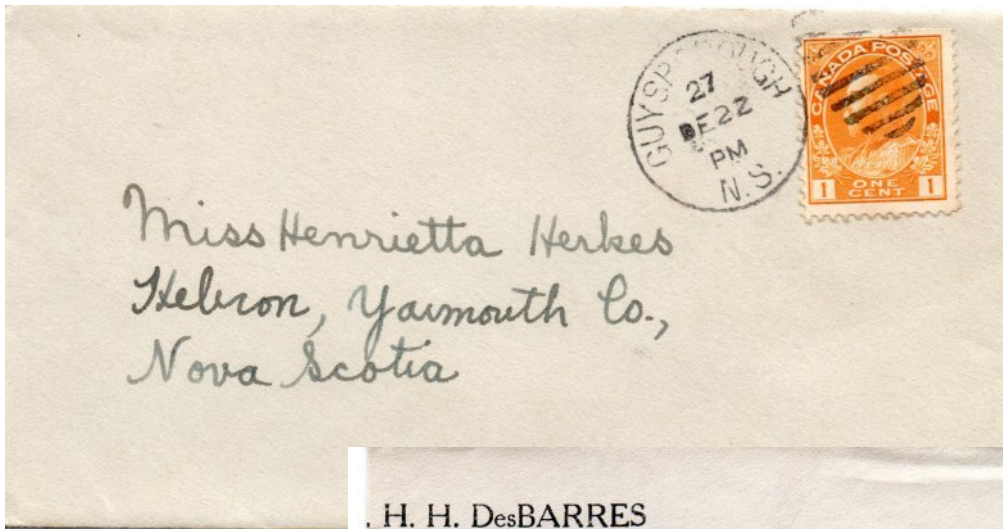 GUYSBOROUGH
27
DE 22
PM
N.S.
CANADA POSTAGE
1 ONE CENT 1
Miss Henrietta Herkes
Hebron, Yarmouth Co.,
Nova Scotia
. H. H. DesBARRES